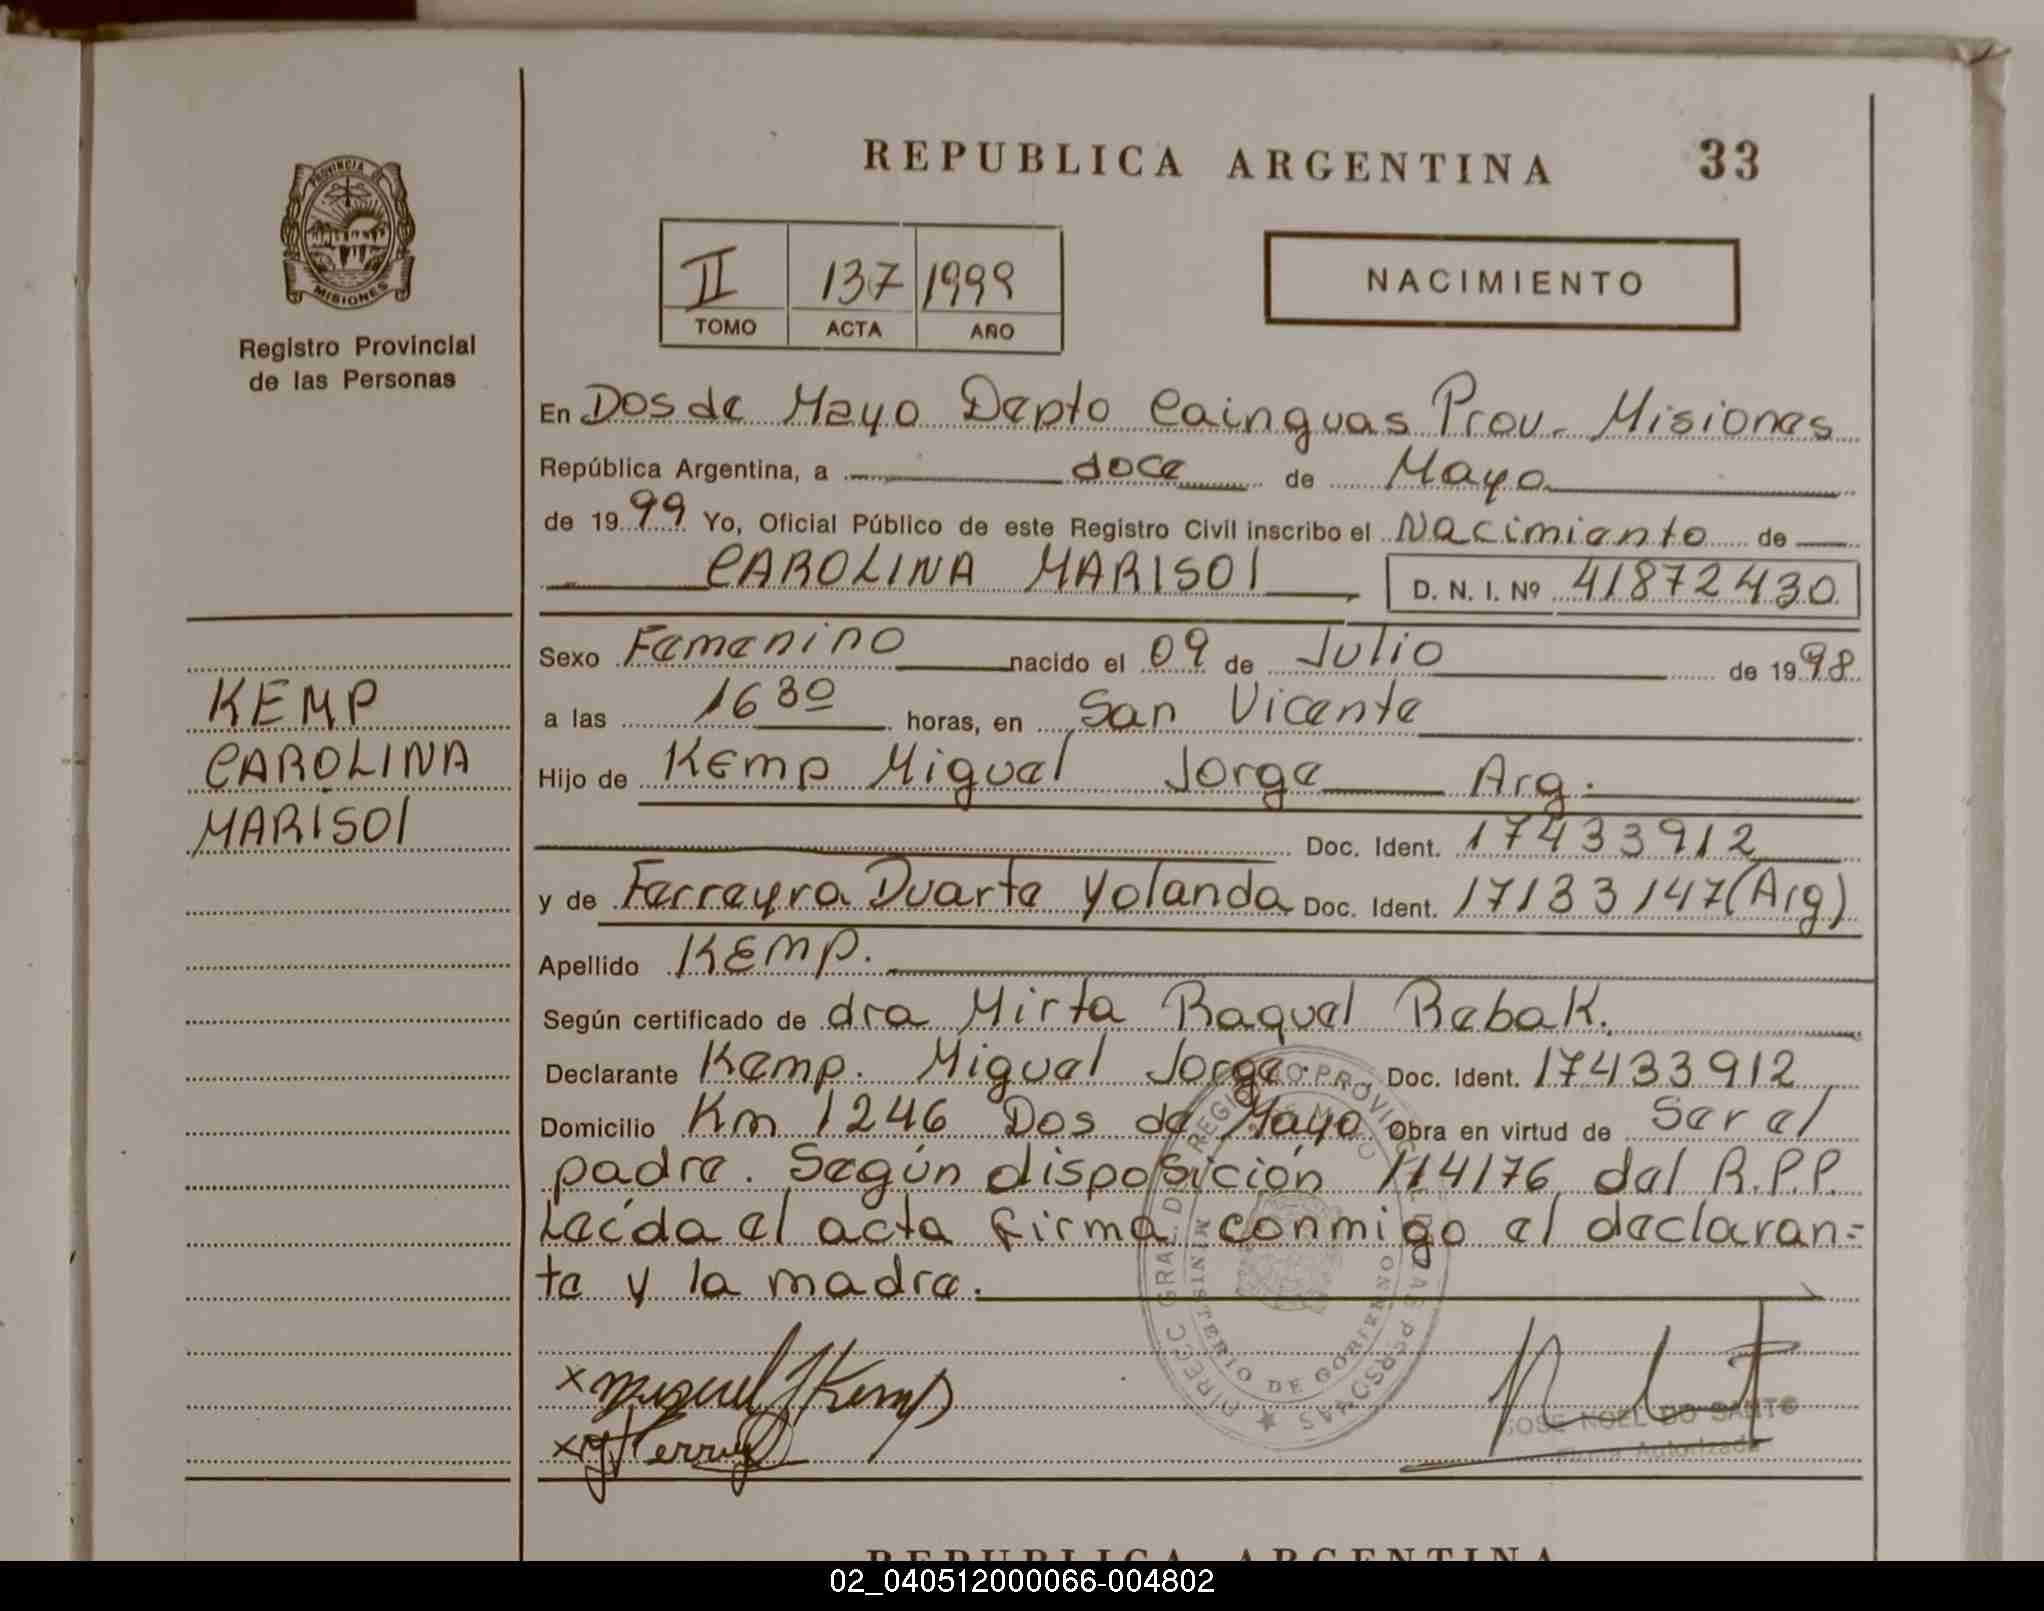 REPUBLICA ARGENTINA 33
PROVINCIA DE
MISIONES
Registro Provincial
de las Personas
II 137 1999
TOMO ACTA AÑO
NACIMIENTO
En Dos de Mayo Depto Cainguas Prov. Misiones
República Argentina, a doce de Mayo
de 1999 Yo, Oficial Público de este Registro Civil inscribo el Nacimiento de
CAROLINA MARISOl D. N. I. Nº 41872430
Sexo Femenino nacido el 09 de Julio de 1998
a las 16 30 horas, en San Vicente
Hijo de Kemp Miguel Jorge Arg.
Doc. Ident. 17433912
y de Ferreyra Duarte Yolanda Doc. Ident. 17133147 (Arg)
Apellido KEMP.
Según certificado de dra Mirta Raquel Rebak.
Declarante Kemp. Miguel Jorge. Doc. Ident. 17433912
Domicilio Km 1246 Dos de Mayo Obra en virtud de Ser el
padre. Según disposición 114/76 del R.P.P.
Leída el acta firma conmigo el declaran=
te y la madre.
KEMP
CAROLINA
MARISOl
x Miguel J Kemp
JOSE NOEL DO SANTO
Firma Autorizada
MINISTERIO DE GOBIERNO
REPUBLICA ARGENTINA
02_040512000066-004802